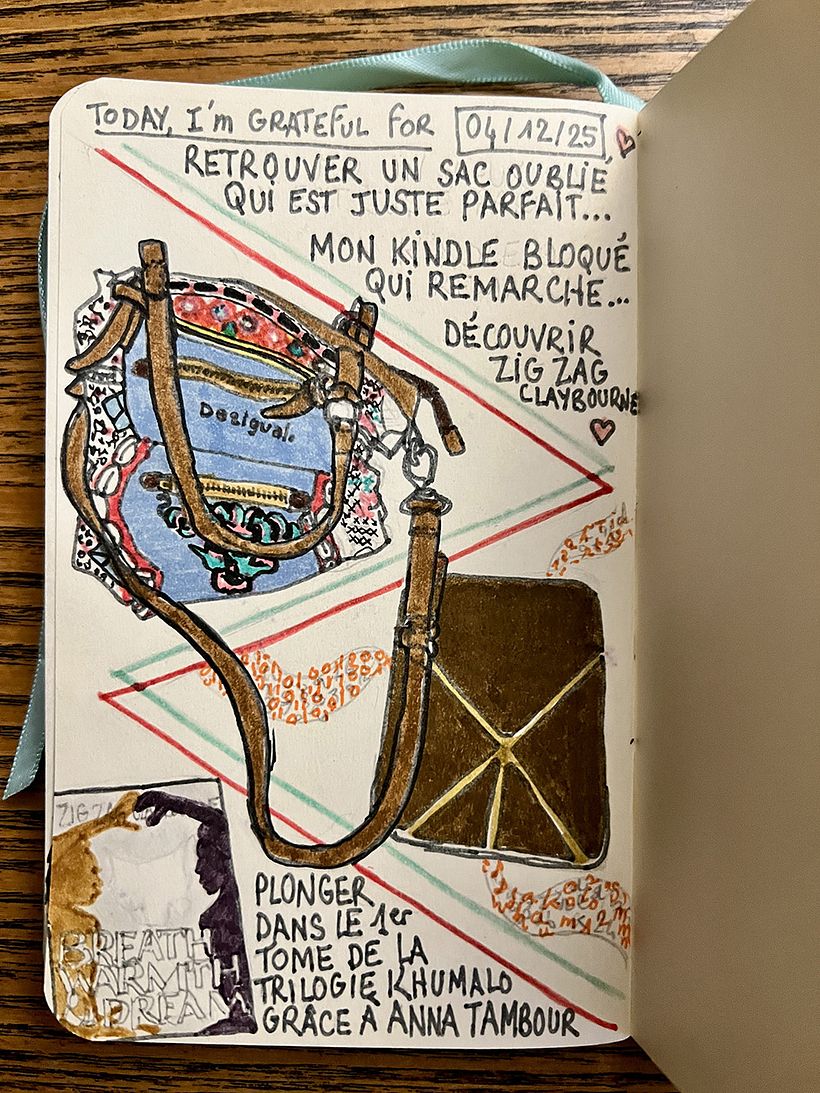 TODAY, I'm GRATEFUL FOR 04/12/25
RETROUVER UN SAC OUBLIE
QUI EST JUSTE PARFAIT...
MON KINDLE BLOQUÉ
QUI REMARCHE...
DÉCOUVRIR
ZIG ZAG
CLAYBOURNE
Desigual.
ZIG ZAG
BREATH
WARMTH
DREAM
PLONGER
DANS LE 1er
TOME DE LA
TRILOGIE KHUMALO
GRÂCE À ANNA TAMBOUR